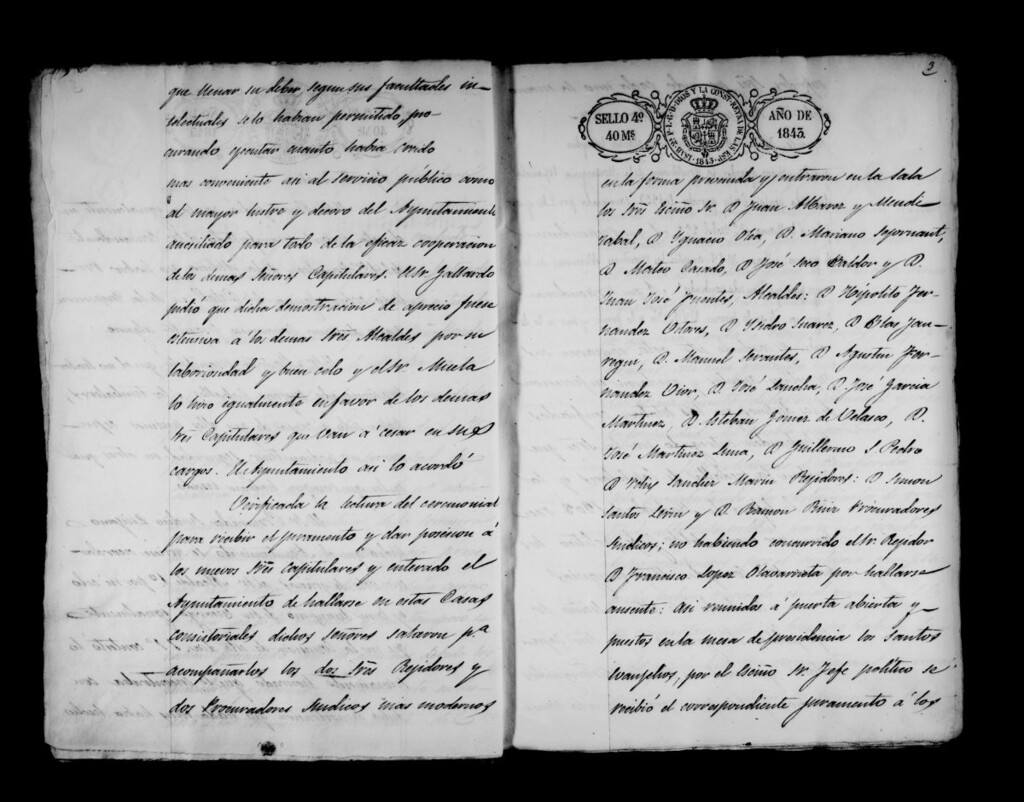 que llenar su deber segun sus facultades in-
telectuales se lo habian permitido, pro-
curando ejecutar cuanto habia creido
mas conveniente asi al servicio público como
al mayor lustre y decoro del Ayuntamiento
aucsiliado para todo de la eficaz cooperacion
de los demas Señores Capitulares. El Sr. Gallardo
pidió que dicha demostracion de aprecio fuese
estensiva á los demas Sres Alcaldes por su
laboriosidad y buen celo y el Sr. Muela
lo hizo igualmente en favor de los demas
Sres Capitulares que van a cesar en sus
cargos. El Ayuntamiento asi lo acordó
Verificada la lectura del ceremonial
para recibir el juramento y dar posesion á
los nuevos Sres capitulares y enterado el
Ayuntamiento de hallarse en estas Casas
consistoriales dichos señores salieron pa
acompañarlos los dos Sres Rejidores y
dos Procuradores Sindicos mas modernos
3
SELLO 4º
40 Ms.
ISAB. 2ª P. L. G. D. DIOS Y LA CONST. REYNA DE LAS ESP. 1843
AÑO DE
1843.
en la forma prevenida y entraron en la sala
los Sres Escmo Sr. D Juan Alvarez y Mendi
zabal, D Ygnacio Olea, D. Mariano Sejornant,
D Mateo Casado, D José Seco Baldor y D.
Juan José Fuentes, Alcaldes: D Hipolito Fer-
nandez Ostares, D Ysidro Suarez, D Blas Jau-
regui, D. Manuel Servantes, D Agustin Fer-
nandez Oior, D. José Sancha, D. José Garcia
Martinez, D. Esteban Gomez de Velasco, D.
José Martinez Luna, D Guillermo S. Pedro
D Felis Sanchez Marin Rejidores: D Simon
Santos Lerin y D. Ramon Ruiz Procuradores
Sindicos; no habiendo concurrido el Sr. Rejidor
D Francisco Lopez Olavarrieta por hallarse
ausente: Asi reunidos á puerta abierta y
puestos en la mesa de presidencia los santos
evanjelios, por el Escmo Sr. Jefe politico se
recibió el correspondiente juramento á los